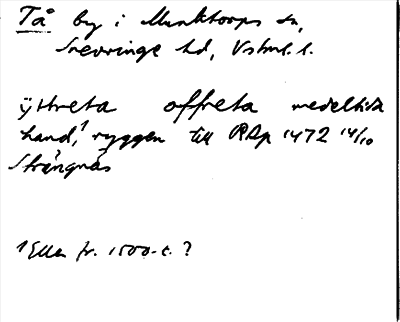 Tå by i Munktorps sn,
Snevringe hd, Vstml. l.
ÿttreta offreta medeltida
hand,¹ ryggen till RAp 1472 14/10
Strängnäs
¹ Eller fr. 1500-t.?